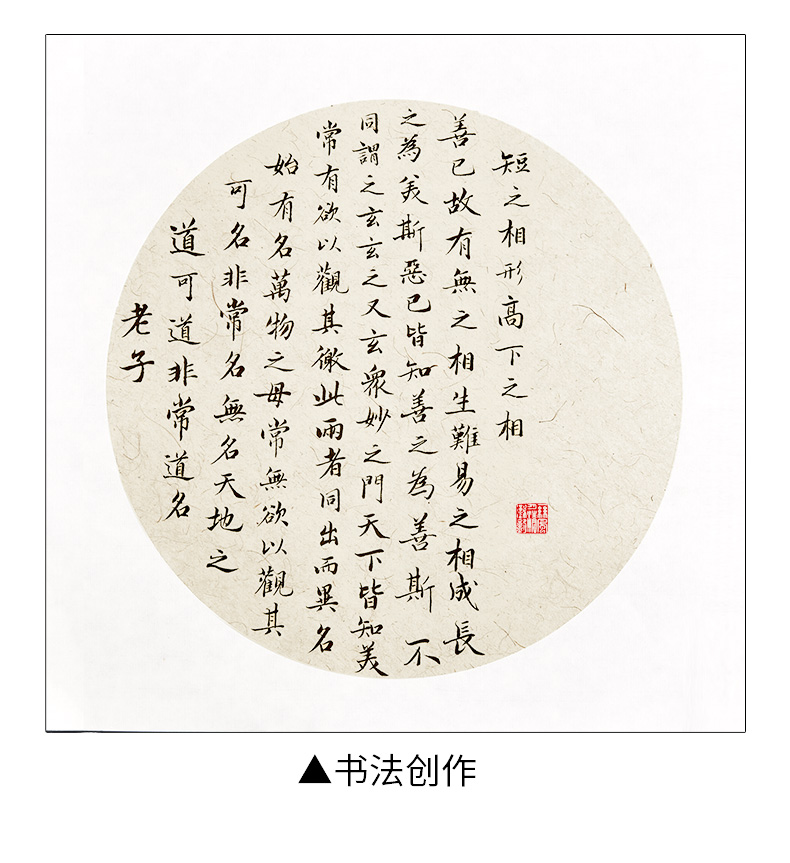 老子
道可道非常道名
可名非常名無名天地之
始有名萬物之母常無欲以觀其
常有欲以觀其徼此兩者同出而異名
同謂之玄玄之又玄衆妙之門天下皆知美
之為美斯惡已皆知善之為善斯不
善已故有無之相生難易之相成長
短之相形高下之相
▲书法创作